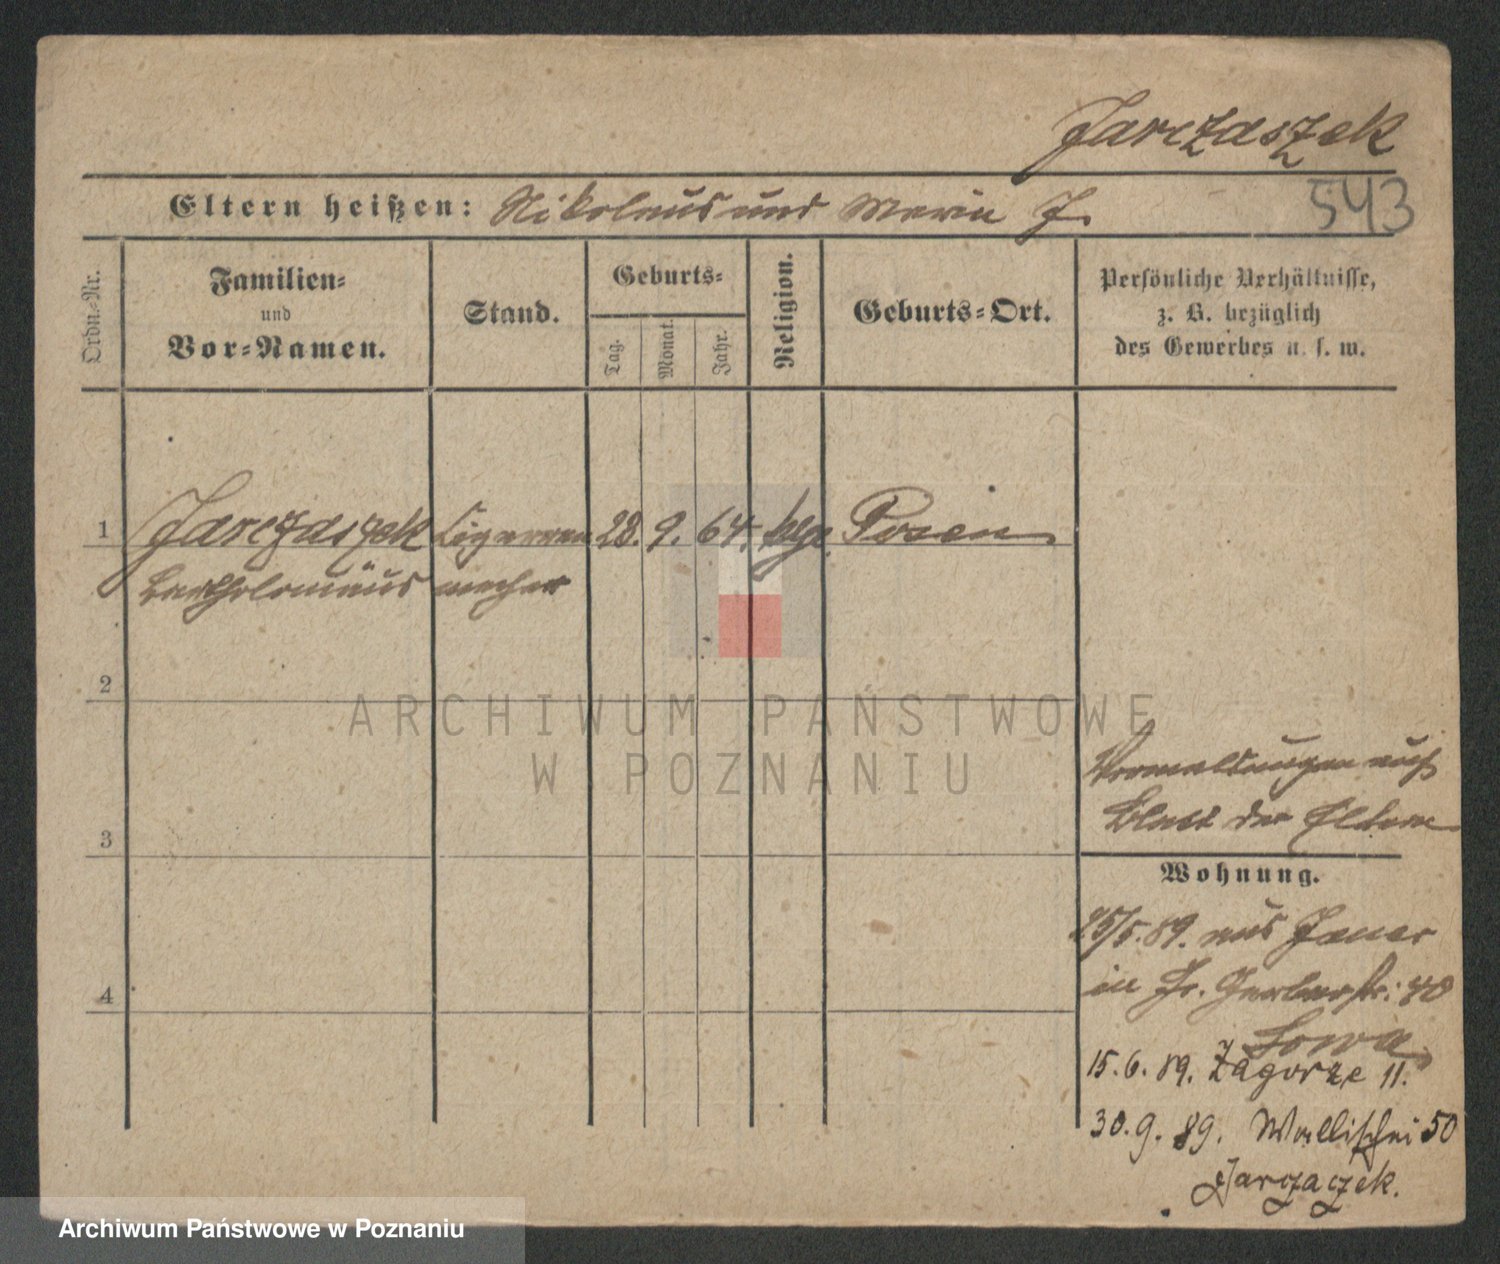 Jarczaszek
543
Eltern heißen: Nikolaus und Maria J.
Ordn.-Nr.
Familien-
und
Vor-Namen.
Stand.
Geburts-
Tag.
Monat.
Jahr.
Religion.
Geburts-Ort.
Persönliche Verhältnisse,
z. B. bezüglich
des Gewerbes u. s. w.
1 Jarczaszek Cigarren 28. 9. 64. Posen
Bartholomäus macher
2
3
4
ARCHIWUM PAŃSTWOWE
W POZNANIU
Vermeldungen auf
Blatt der Eltern
Wohnung.
25/5. 89. aus Jauer
in Gr. Gerberstr: 40
Sowa
15. 6. 89. Zagorze 11.
30. 9. 89. Wallischei 50
Jarzaczek.
Archiwum Państwowe w Poznaniu